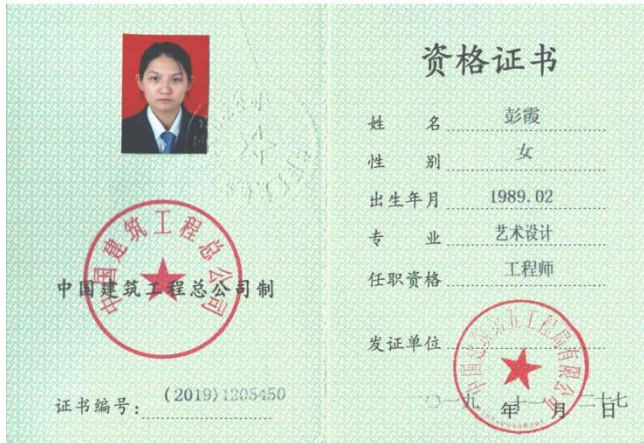 中国建筑工程总公司
中国建筑工程总公司制
证书编号：(2019)1205450
资格证书
姓 名 彭霞
性 别 女
出生年月 1989.02
专 业 艺术设计
任职资格 工程师
发证单位
中国建筑第五工程局有限公司
二〇一九 年 十一 月 二十七 日